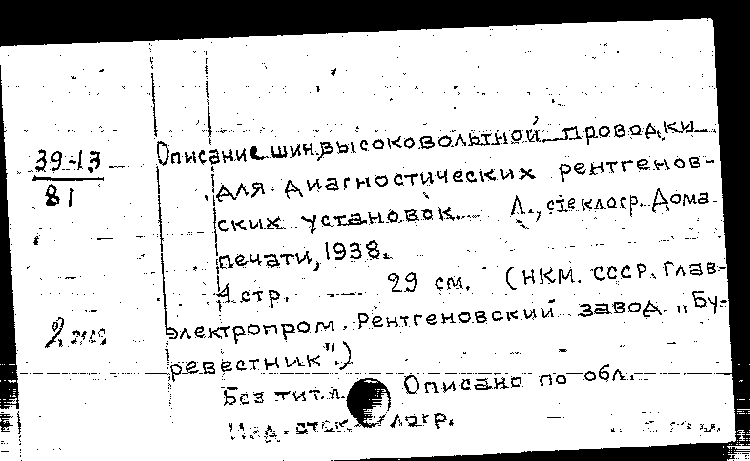 39-13
81
Описание шин, высоковольтной проводки
для диагностических рентгенов-
ских установок. Л., стеклогр. Дома
печати, 1938.
1 стр. 29 см. (НКМ. СССР. Глав-
электропром. Рентгеновский завод „Бу-
ревестник".)
Без тит. л. Описано по обл.
Изд. стеклогр.
2